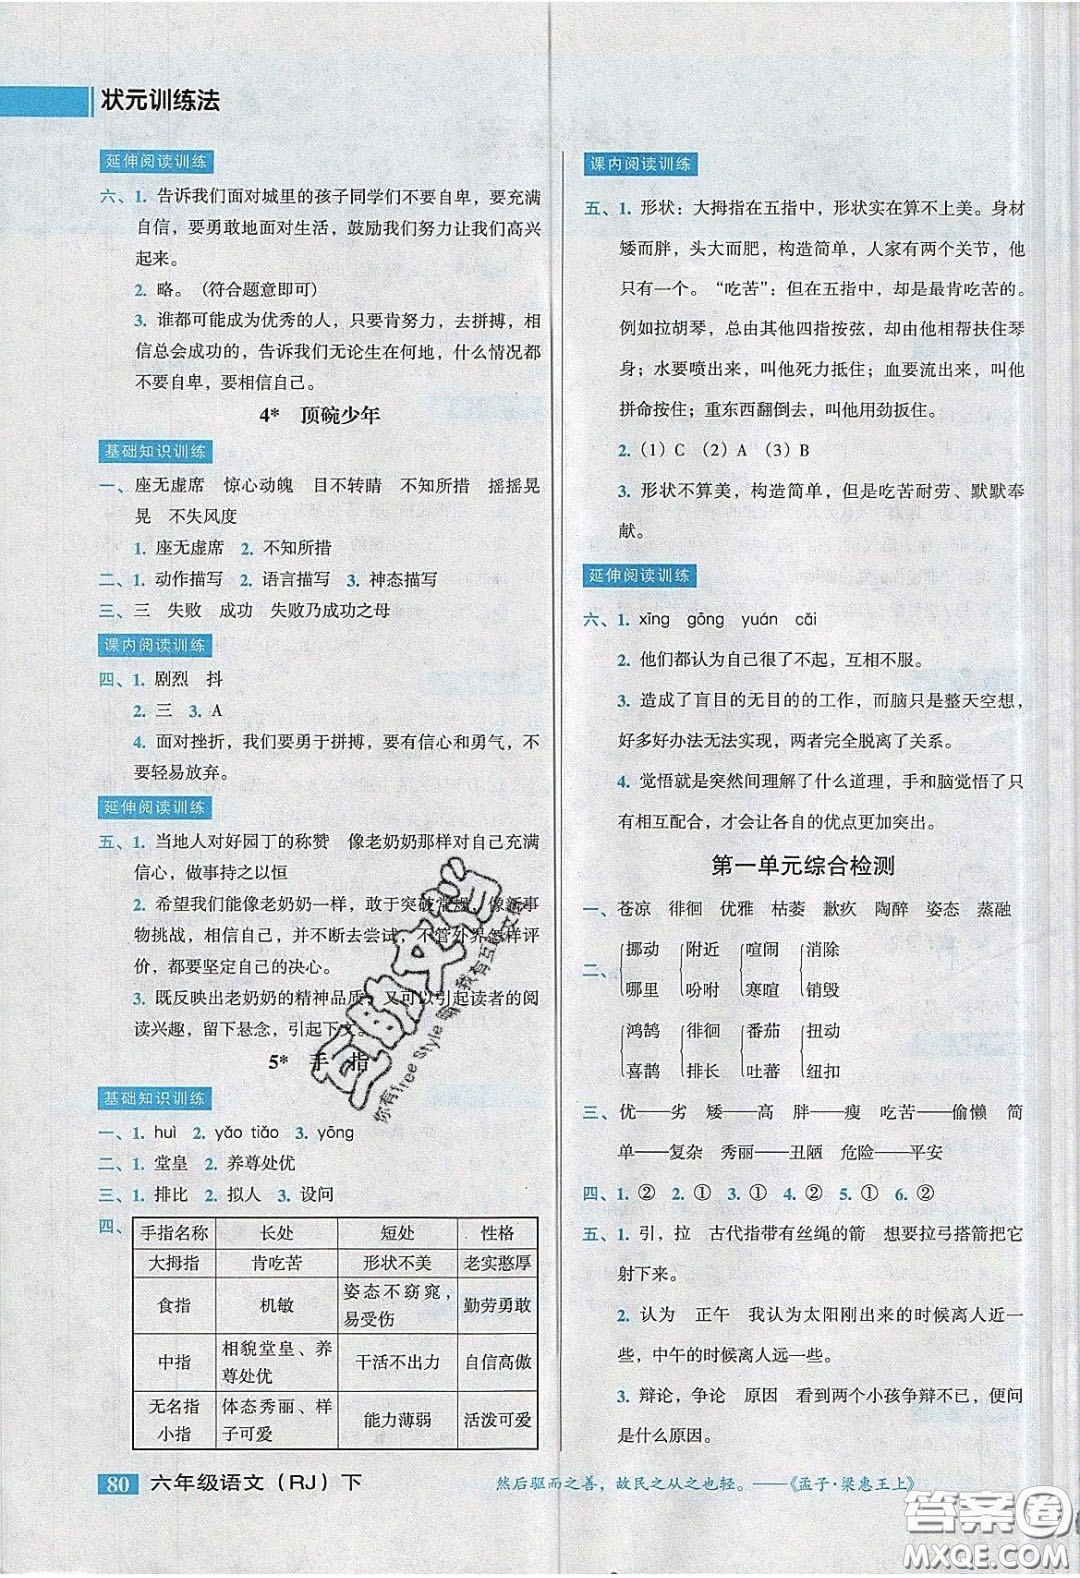 状元训练法
延伸阅读训练
六、1. 告诉我们面对城里的孩子同学们不要自卑，要充满
自信，要勇敢地面对生活，鼓励我们努力让我们高兴
起来。
2. 略。（符合题意即可）
3. 谁都可能成为优秀的人，只要肯努力，去拼搏，相
信总会成功的，告诉我们无论生在何地，什么情况都
不要自卑，要相信自己。
4* 顶碗少年
基础知识训练
一、座无虚席 惊心动魄 目不转睛 不知所措 摇摇晃
晃 不失风度
1. 座无虚席 2. 不知所措
二、1. 动作描写 2. 语言描写 3. 神态描写
三、三 失败 成功 失败乃成功之母
课内阅读训练
四、1. 剧烈 抖
2. 三 3. A
4. 面对挫折，我们要勇于拼搏，要有信心和勇气，不
要轻易放弃。
延伸阅读训练
五、1. 当地人对好园丁的称赞 像老奶奶那样对自己充满
信心，做事持之以恒
2. 希望我们能像老奶奶一样，敢于突破常规，像新事
物挑战，相信自己，并不断去尝试，不管外界怎样评
价，都要坚定自己的决心。
3. 既反映出老奶奶的精神品质，又可以引起读者的阅
读兴趣，留下悬念，引起下文。
5* 手 指
基础知识训练
一、1. huì 2. yǎo tiǎo 3. yōng
二、1. 堂皇 2. 养尊处优
三、1. 排比 2. 拟人 3. 设问
四、
手指名称 长处 短处 性格
大拇指 肯吃苦 形状不美 老实憨厚
食指 机敏 姿态不窈窕，易受伤 勤劳勇敢
中指 相貌堂皇、养尊处优 干活不出力 自信高傲
无名指 小指 体态秀丽、样子可爱 能力薄弱 活泼可爱
80 六年级语文（RJ）下
课内阅读训练
五、1. 形状：大拇指在五指中，形状实在算不上美。身材
矮而胖，头大而肥，构造简单，人家有两个关节，他
只有一个。“吃苦”：但在五指中，却是最肯吃苦的。
例如拉胡琴，总由其他四指按弦，却叫他相帮扶住琴
身；水要喷出来，叫他死力抵住；血要流出来，叫他
拼命按住；重东西翻倒去，叫他用劲扳住。
2.（1）C （2）A （3）B
3. 形状不算美，构造简单，但是吃苦耐劳、默默奉
献。
延伸阅读训练
六、1. xīng gōng yuán cǎi
2. 他们都认为自己很了不起，互相不服。
3. 造成了盲目的无目的的工作，而脑只是整天空想，
好多好办法无法实现，两者完全脱离了关系。
4. 觉悟就是突然间理解了什么道理，手和脑觉悟了只
有相互配合，才会让各自的优点更加突出。
第一单元综合检测
一、苍凉 徘徊 优雅 枯萎 歉疚 陶醉 姿态 蒸融
二、
挪动 附近 喧闹 消除
哪里 吩咐 寒暄 销毁
鸿鹄 徘徊 番茄 扭动
喜鹊 排长 吐蕃 纽扣
三、优——劣 矮——高 胖——瘦 吃苦——偷懒 简
单——复杂 秀丽——丑陋 危险——平安
四、1. ② 2. ① 3. ① 4. ② 5. ① 6. ②
五、1. 引，拉 古代指带有丝绳的箭 想要拉弓搭箭把它
射下来。
2. 认为 正午 我认为太阳刚出来的时候离人近一
些，中午的时候离人远一些。
3. 辩论，争论 原因 看到两个小孩争辩不已，便问
是什么原因。
然后驱而之善，故民之从之也轻。——《孟子·梁惠王上》
答案圈
MXQE.COM